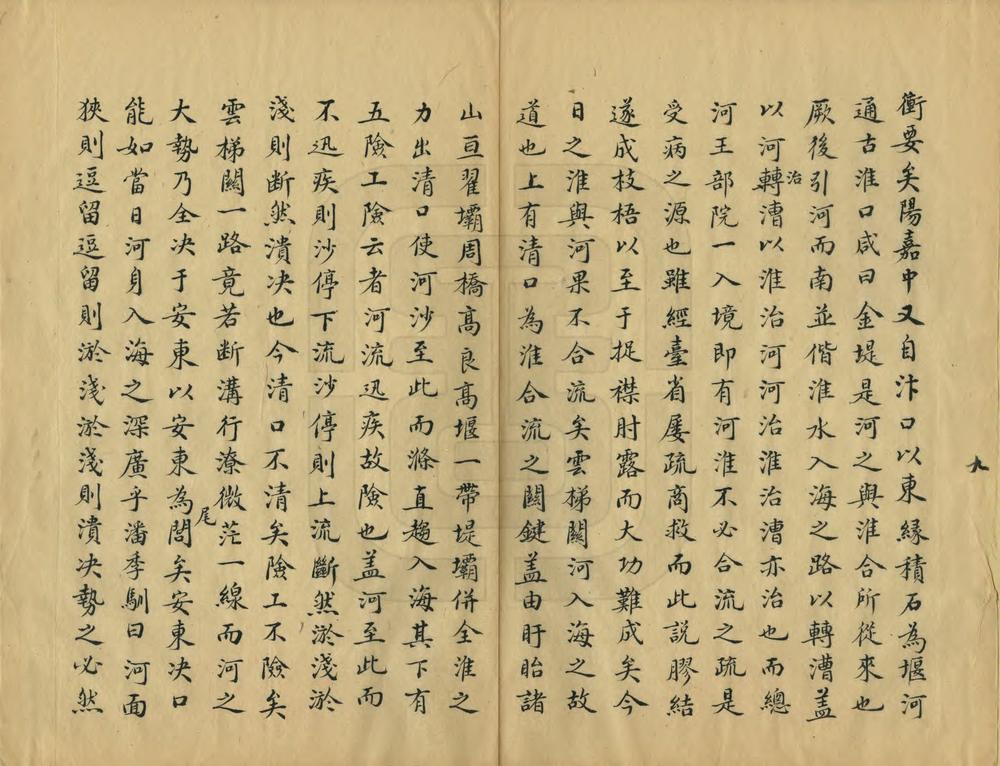 衝要矣陽嘉中又自汴口以東緣積石為堰河
通古淮口咸曰金堤是河之與淮合所從來也
厥後引河而南並偕淮水入海之路以轉漕蓋
以河治轉漕以淮治河河治淮治漕亦治也而總
河王部院一入境即有河淮不必合流之疏是
受病之源也雖經臺省屢疏商救而此說膠結
遂成枝梧以至于捉襟肘露而大功難成矣今
日之淮與河果不合流矣雲梯關河入海之故
道也上有清口為淮合流之關鍵蓋由盱眙諸
山亘翟壩周橋高良高堰一帶堤壩併全淮之
力出清口使河沙至此而滌直趨入海其下有
五險工險云者河流迅疾故險也蓋河至此而
不迅疾則沙停下流沙停則上流斷然淤淺淤
淺則断然潰决也今清口不清矣險工不險矣
雲梯關一路竟若断溝行潦微茫一線而河之
大勢乃全决于安東以安東為尾閭矣安東决口
能如當日河身入海之深廣乎潘季馴曰河面
狹則逗留逗留則淤淺淤淺則潰决勢之必然
九